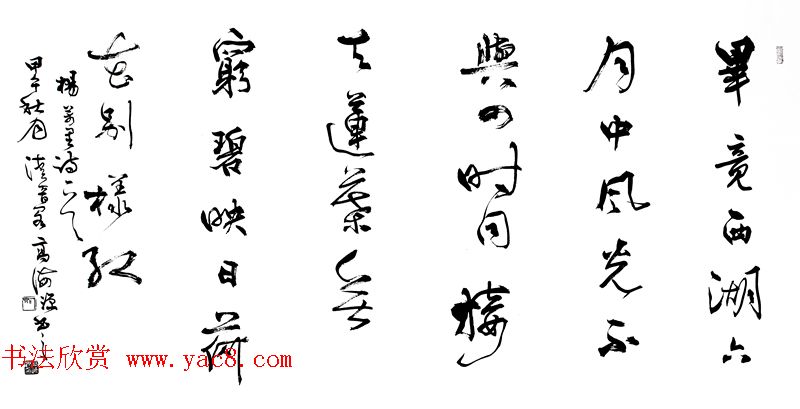 畢竟西湖六
月中风光不
與四时同接
天蓮葉無
窮碧映日荷
花别樣红
楊萬里诗
甲午秋月 高海
书法欣赏 www.yac8.com